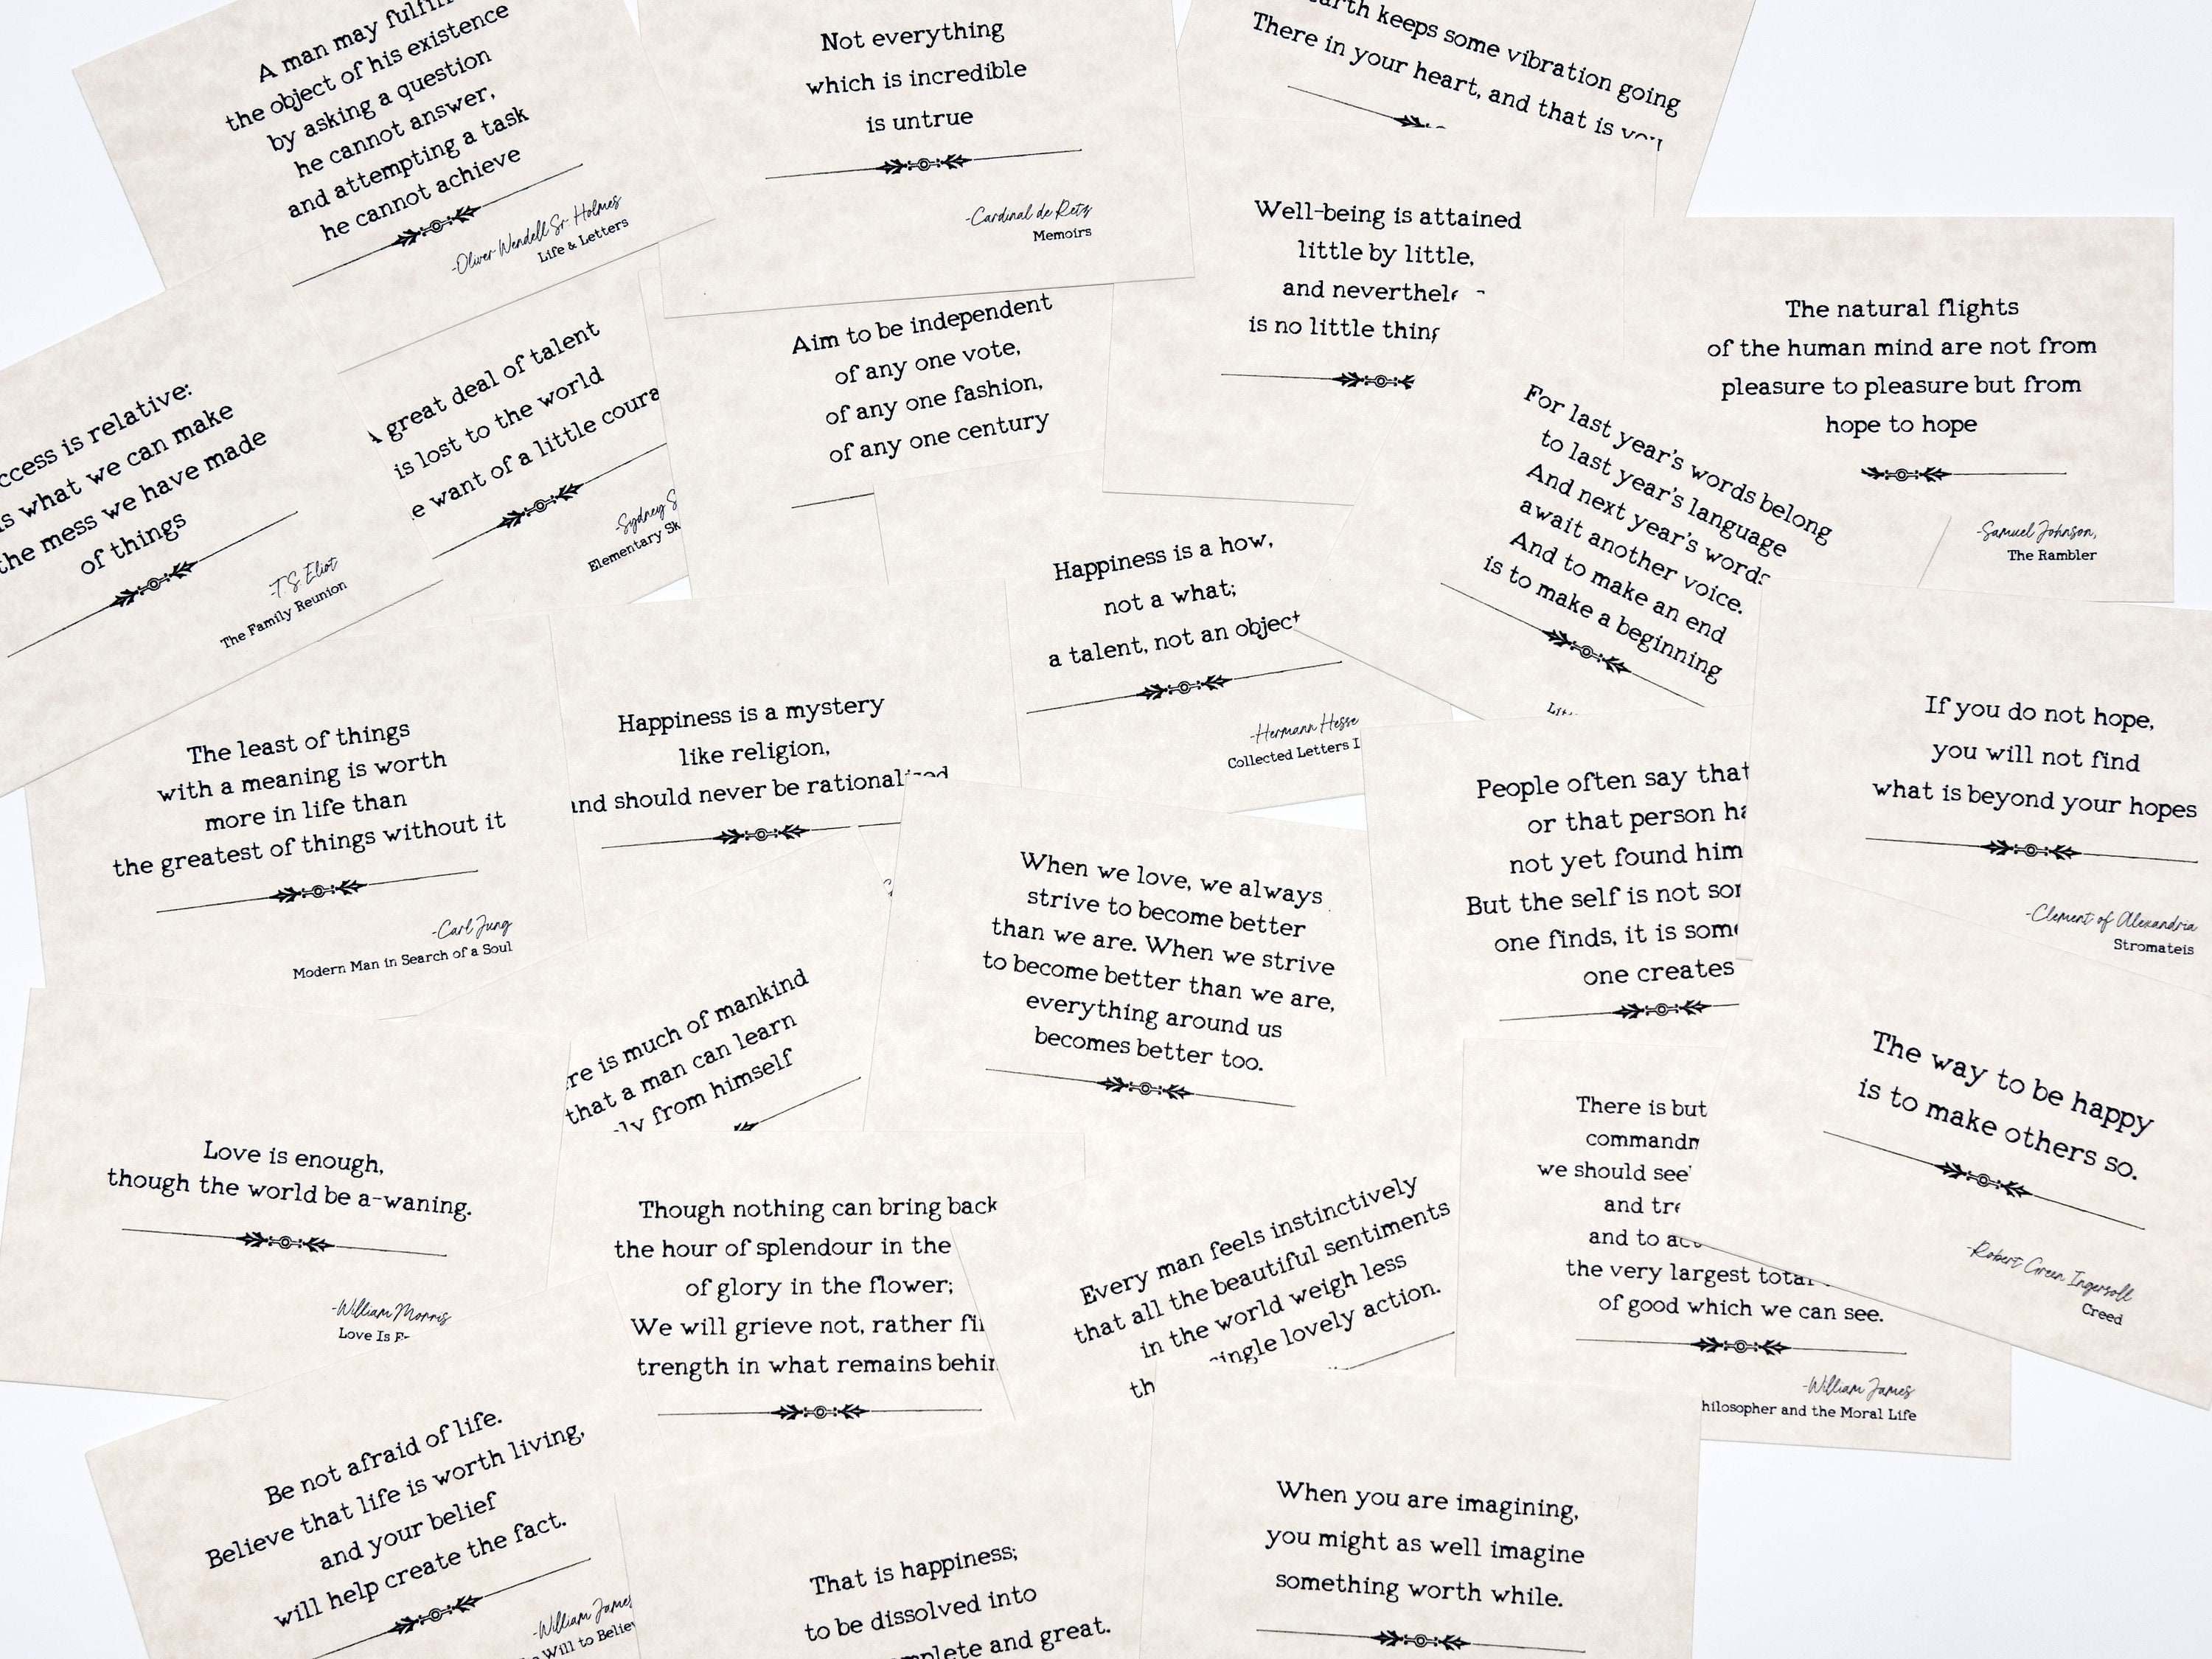 A man may
the object of his existence
by asking a question
he cannot answer,
and attempting a task
he cannot achieve
-Oliver Wendell Sr. Holmes
Life & Letters
Not everything
which is incredible
is untrue
-Cardinal de Retz
Memoirs
keeps some vibration going
There in your heart, and that is
Well-being is attained
little by little,
and
is no little
The natural flights
of the human mind are not from
pleasure to pleasure but from
hope to hope
-Samuel Johnson,
The Rambler
is relative:
what we can make
the mess we have made
of things
-T.S. Eliot
The Family Reunion
great deal of talent
is lost to the world
want of a little
-Sydney
Elementary
Aim to be independent
of any one vote,
of any one fashion,
of any one century
For last year's words belong
to last year's language
And next year's words
await another voice.
And to make an end
is to make a beginning
Happiness is a how,
not a what;
a talent, not an object
-Hermann Hesse
Collected Letters
If you do not hope,
you will not find
what is beyond your hopes
-Clement of Alexandria
Stromateis
The least of things
with a meaning is worth
more in life than
the greatest of things without it
-Carl Jung
Modern Man in Search of a Soul
Happiness is a mystery
like religion,
should never be
People often say that
or that person
not yet found
But the self is not
one finds, it is
one creates
When we love, we always
strive to become better
than we are. When we strive
to become better than we are,
everything around us
becomes better too.
is much of mankind
that a man can learn
from himself
The way to be happy
is to make others so.
-Robert Green Ingersoll
Creed
Love is enough,
though the world be a-waning.
-William Morris
Love Is
Though nothing can bring back
the hour of splendour in the
of glory in the flower;
We will grieve not, rather
in what remains
Every man feels instinctively
that all the beautiful sentiments
in the world weigh less
lovely action.
There is but
we should
and
and to
the very largest total
of good which we can see.
-William James
and the Moral Life
Be not afraid of life.
Believe that life is worth living,
and your belief
will help create the fact.
-William James
Will to
That is happiness;
to be dissolved into
and great.
When you are imagining,
you might as well imagine
something worth while.